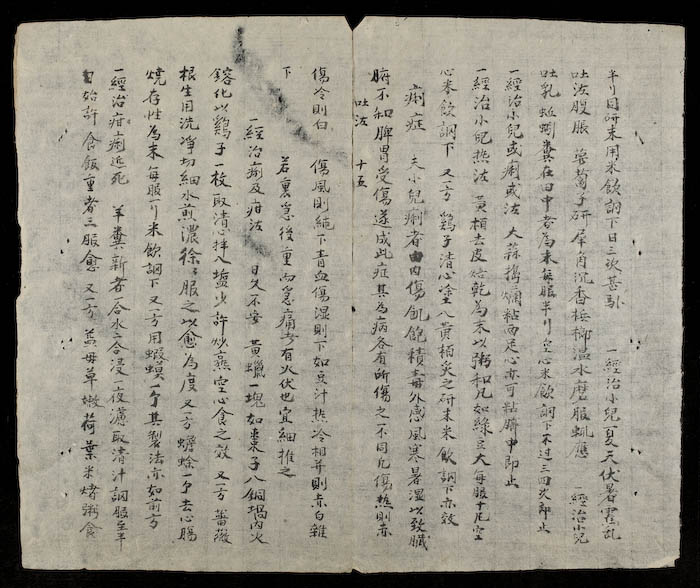 半刂同研末用米飲調下日三次甚馱　一經治小兒夏天伏暑霍乱
吐法腹脹　蔔子研犀角沉香梹榔温水磨服輒應　一經治小兒
吐乳蚯蚓糞在田中者為末每服半刂空心米飲調下不过三四次即止
一經治小兒或痢或法　大蒜搗爛粘両足心亦可粘臍中即止
一經治小兒热法　黄栢去皮焙乾為末以粥和丸如綠豆大每服十尼空
心米飲調下　又一方　鷄子清心塗八黄栢炙之研末米飲調下亦效
痢症　夫小兒痢者由内傷飢飽積毒外感風寒暑湿以致臟
腑不和脾胃受傷遂成此症其為病各有所傷之一不同凡傷热則赤
吐法　十五
傷冷則白　傷風則純下青血傷湿則下如豆汁热冷相并則赤白雜
下　若裏急後重而急痛者有火伏也宜細推之
一經治痢及疳法　日久不安　黄蠟一塊如棗子八銅堝内火
鎔化以鷄子一枚取清心拌入塩少許炒熟空心食之效　又一方　薔薇
根生用洗凈切細水煎濃徐々服之以愈為度　又一方　蟾蜍一个去心腸
燒存性為末每服一刂米飲調下　又一方用蝦蟆一个其製法亦如前方
一經治疳痢近死　羊糞新者一合水二合浸一夜濾取清汁調服至半
日始許食飯重者三服愈　又一方　益母草嫩荷葉米煑粥食